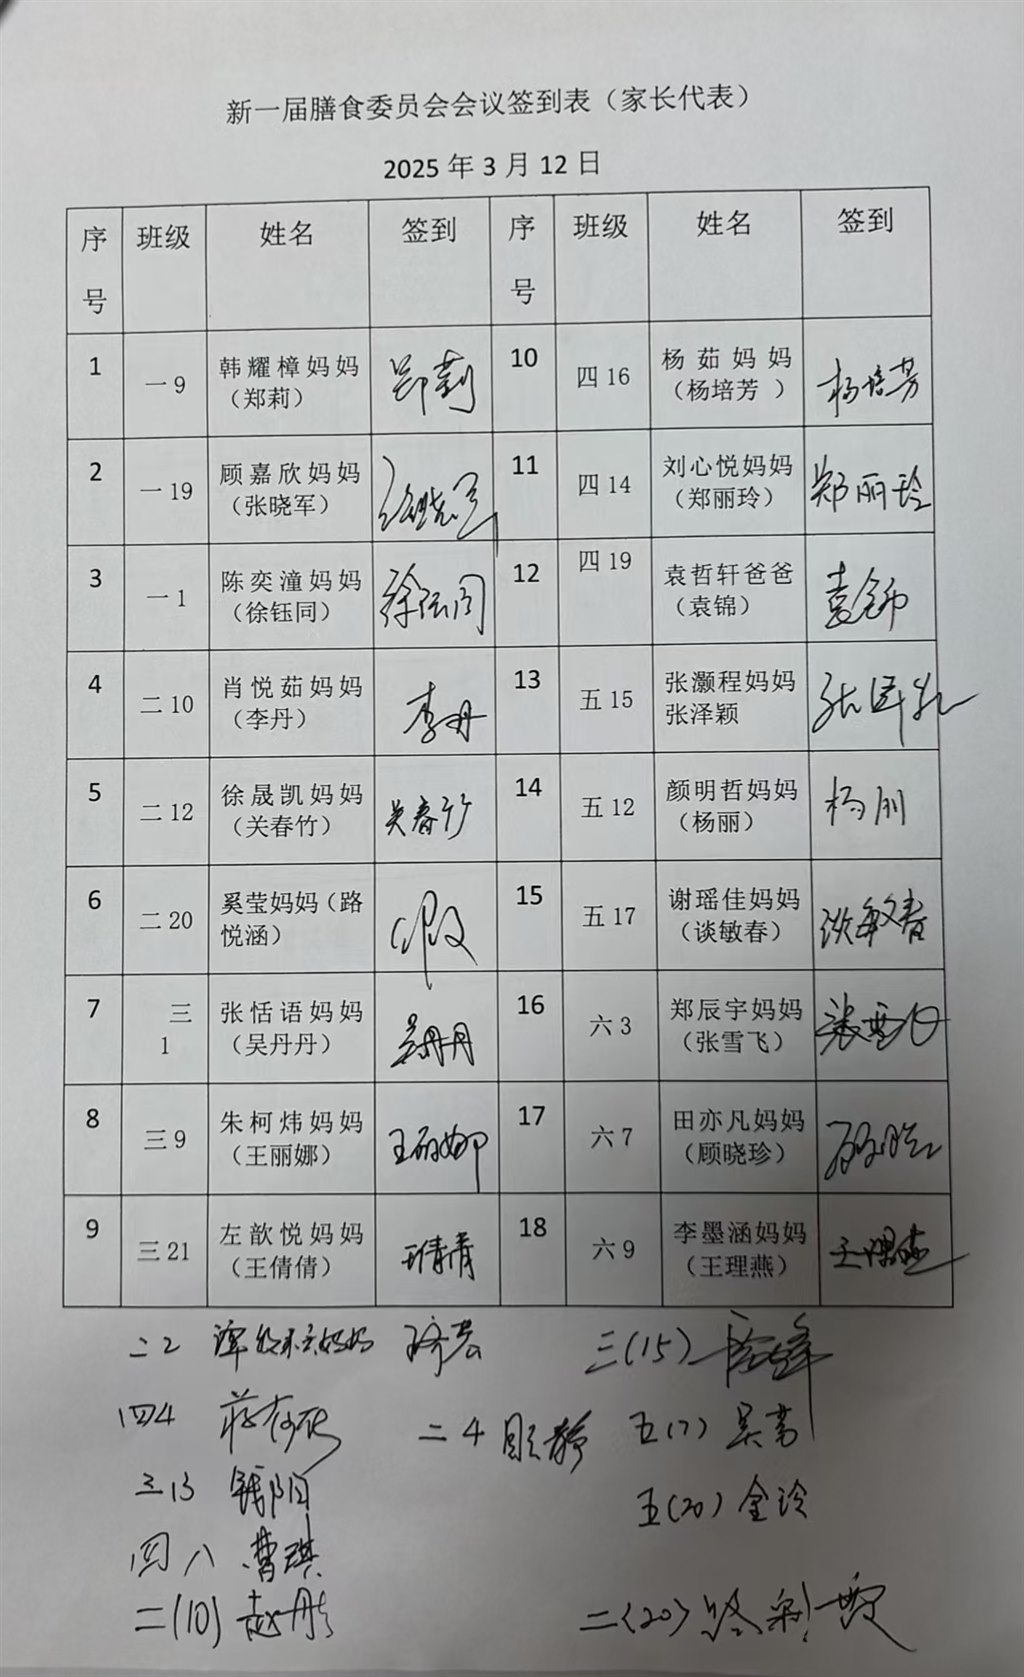 新一届膳食委员会会议签到表（家长代表）
2025 年 3 月 12 日
序号 班级 姓名 签到 序号 班级 姓名 签到
1 一 9 韩耀樟妈妈（郑莉） 郑莉 10 四 16 杨茹妈妈（杨培芳 ） 杨培芳
2 一 19 顾嘉欣妈妈（张晓军） 11 四 14 刘心悦妈妈（郑丽玲） 郑丽玲
3 一 1 陈奕潼妈妈（徐钰同） 徐钰同 12 四 19 袁哲轩爸爸（袁锦） 袁锦
4 二 10 肖悦茹妈妈（李丹） 李丹 13 五 15 张灏程妈妈张泽颖
5 二 12 徐晟凯妈妈（关春竹） 关春竹 14 五 12 颜明哲妈妈（杨丽） 杨丽
6 二 20 奚莹妈妈（路悦涵） 15 五 17 谢瑶佳妈妈（谈敏春） 谈敏春
7 三 1 张恬语妈妈（吴丹丹） 吴丹丹 16 六 3 郑辰宇妈妈（张雪飞）
8 三 9 朱柯炜妈妈（王丽娜） 王丽娜 17 六 7 田亦凡妈妈（顾晓珍）
9 三 21 左歆悦妈妈（王倩倩） 王倩倩 18 六 9 李墨涵妈妈（王理燕） 王理燕
二2 妈妈 三(15)
四4 二4 顾静 五(7) 吴芳
三13 钱阳 五(20) 金玲
四八 曹琪
二(10) 赵彤 二(20)